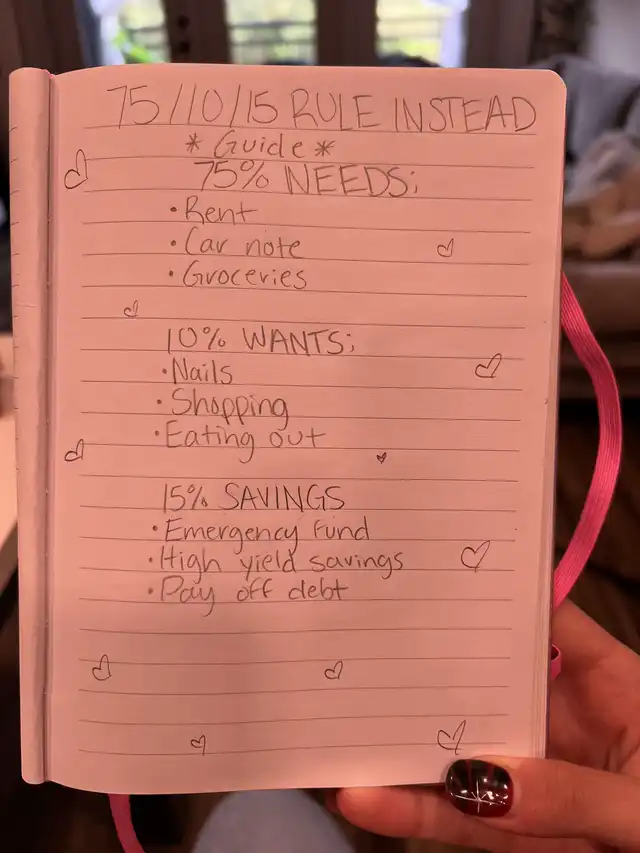 75/10/15 RULE INSTEAD
* Guide *
75% NEEDS;
• Rent
• Car note
• Groceries
10% WANTS;
• Nails
• Shopping
• Eating out
15% SAVINGS
• Emergency fund
• High yield savings
• Pay off debt